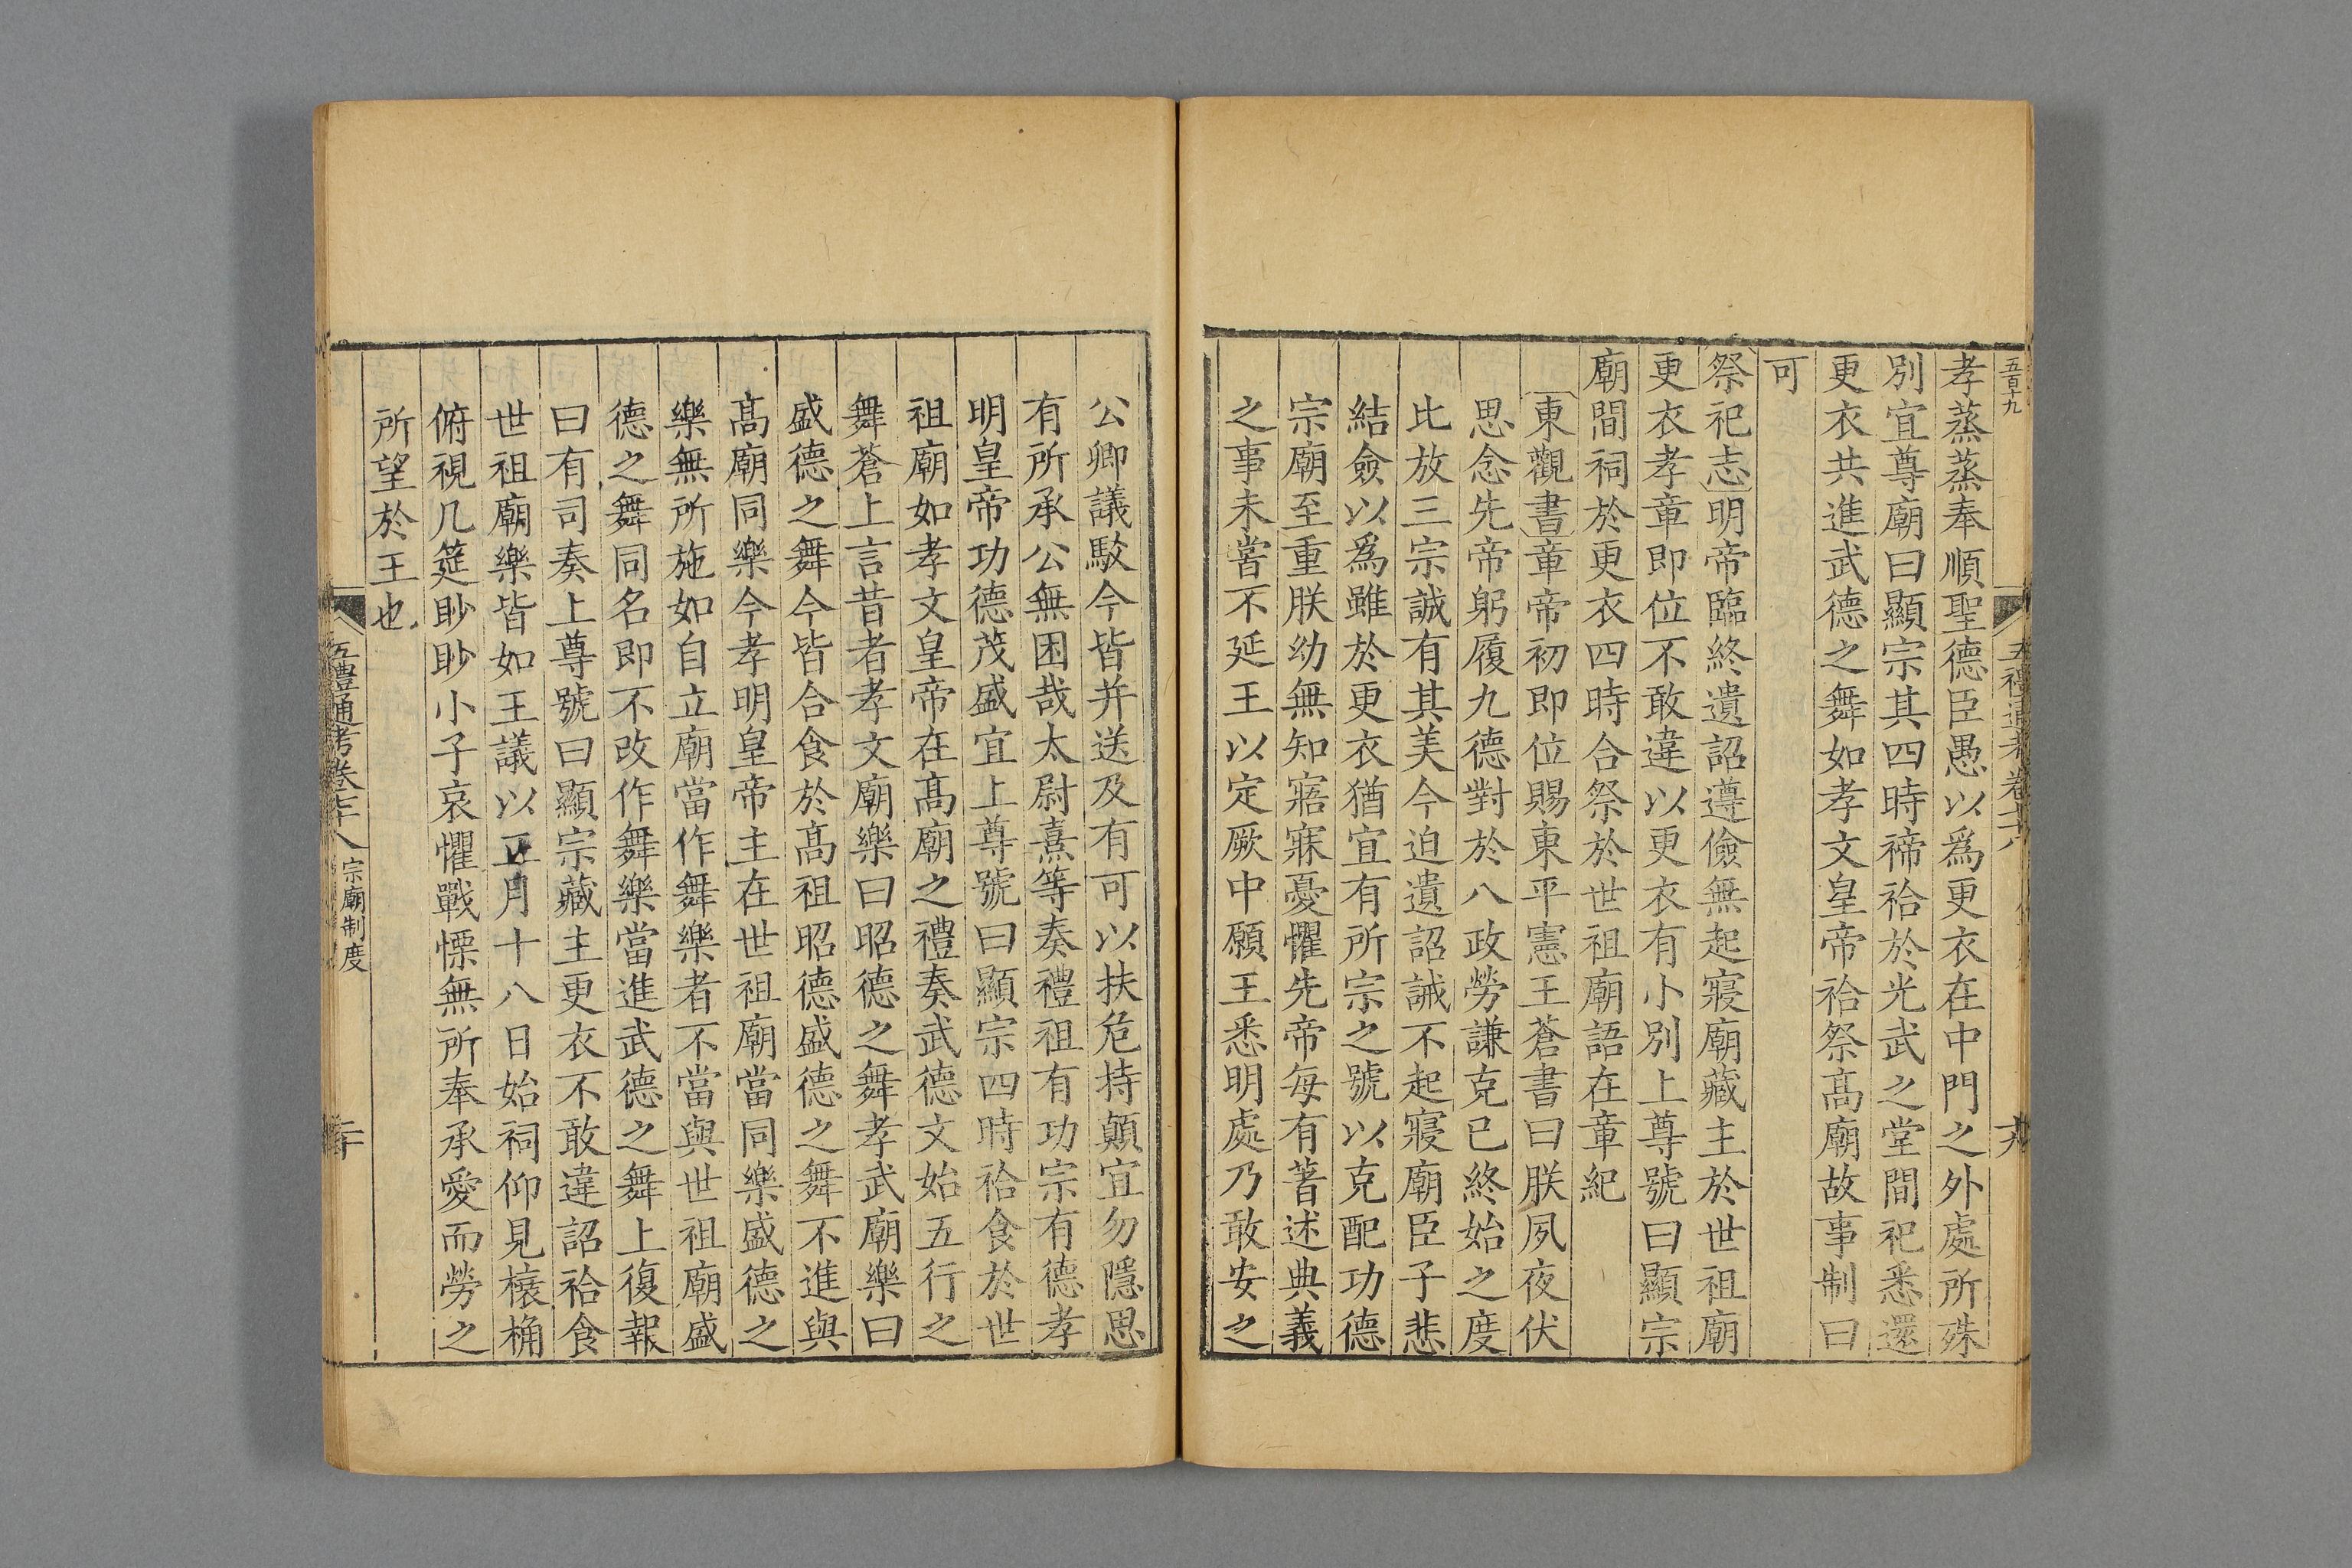 五百十九
五禮通考卷七十八
十九
孝蒸蒸奉順聖德臣愚以爲更衣在中門之外處所殊
別宜尊廟曰顯宗其四時禘祫於光武之堂間祀悉還
更衣共進武德之舞如孝文皇帝祫祭髙廟故事制曰
可
祭祀志明帝臨終遺詔遵儉無起寢廟藏主於世祖廟
更衣孝章即位不敢違以更衣有小別上尊號曰顯宗
廟間祠於更衣四時合祭於世祖廟語在章紀
東觀書章帝初即位賜東平憲王蒼書曰朕夙夜伏
思念先帝躬履九德對於八政勞謙克已終始之度
比放三宗誠有其美今迫遺詔誡不起寢廟臣子悲
結僉以爲雖於更衣猶宜有所宗之號以克配功德
宗廟至重朕幼無知寤寐憂懼先帝每有著述典義
之事未甞不延王以定厥中願王悉明處乃敢安之
公卿議駮今皆并送及有可以扶危持顛宜勿隱思
有所承公無困哉太尉熹等奏禮祖有功宗有德孝
明皇帝功德茂盛宜上尊號曰顯宗四時祫食於世
祖廟如孝文皇帝在髙廟之禮奏武德文始五行之
舞蒼上言昔者孝文廟樂曰昭德之舞孝武廟樂曰
盛德之舞今皆合食於髙祖昭德盛德之舞不進與
髙廟同樂今孝明皇帝主在世祖廟當同樂盛德之
樂無所施如自立廟當作舞樂者不當與世祖廟盛
德之舞同名即不改作舞樂當進武德之舞上復報
曰有司奏上尊號曰顯宗藏主更衣不敢違詔祫食
世祖廟樂皆如王議以正月十八日始祠仰見榱桷
俯視几筵眇眇小子哀懼戰慄無所奉承愛而勞之
所望於王也
五禮通考卷七十八
宗廟制度
二十